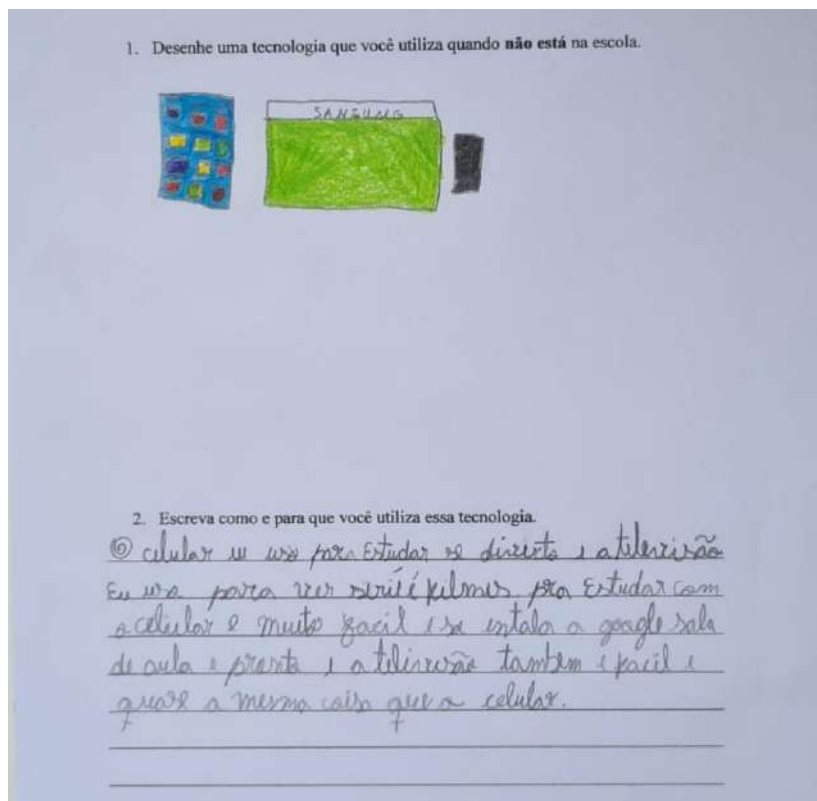 1. Desenhe uma tecnologia que você utiliza quando não está na escola.
SANSUNG
2. Escreva como e para que você utiliza essa tecnologia.
O celular eu uso para Estudar se divirto e a televisão
Eu uso para ver serié é filmes pra Estudar com
o celular e muito facil e se entala o google sala
de aula e pronto e a televisão tambem e facil e
quase a mesma coisa que o celular.